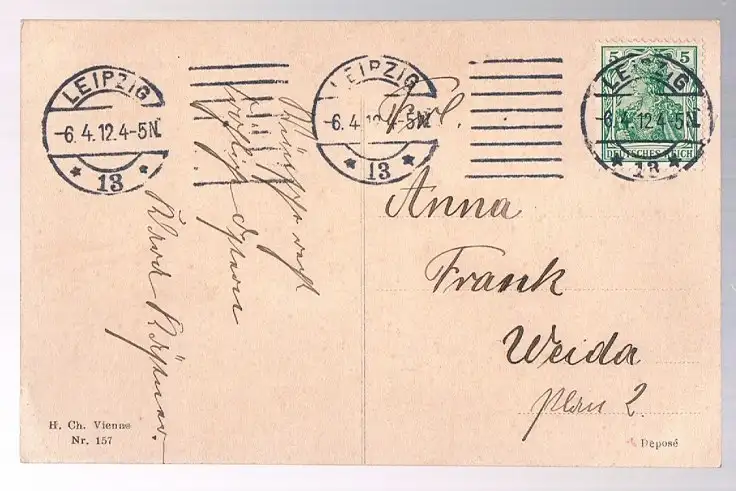 LEIPZIG
-6.4.12.4-5N.
* 13 *
LEIPZIG
-6.4.12.4-5N.
* 13 *
LEIPZIG
-6.4.12.4-5N.
5 5
DEUTSCHES REICH
Frl.
Anna
Frank
Weida
Plan 2.
Wünsche euch
fröhliche Ostern
H. Ch. Vienne
Nr. 157
Deposé